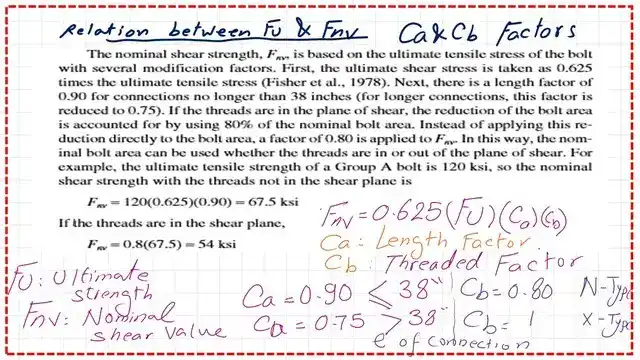 Relation between Fu & Fnv   Ca & Cb Factors
The nominal shear strength, Fnv, is based on the ultimate tensile stress of the bolt
with several modification factors. First, the ultimate shear stress is taken as 0.625
times the ultimate tensile stress (Fisher et al., 1978). Next, there is a length factor of
0.90 for connections no longer than 38 inches (for longer connections, this factor is
reduced to 0.75). If the threads are in the plane of shear, the reduction of the bolt area
is accounted for by using 80% of the nominal bolt area. Instead of applying this re-
duction directly to the bolt area, a factor of 0.80 is applied to Fnv. In this way, the nom-
inal bolt area can be used whether the threads are in or out of the plane of shear. For
example, the ultimate tensile strength of a Group A bolt is 120 ksi, so the nominal
shear strength with the threads not in the shear plane is
Fnv = 120(0.625)(0.90) = 67.5 ksi
If the threads are in the shear plane,
Fnv = 0.8(67.5) = 54 ksi
Fnv = 0.625(FU)(Ca)(Cb)
Ca: Length Factor
Cb: Threaded Factor
FU: Ultimate
strength
Fnv: Nominal
shear value
Ca = 0.90 ≤ 38"
Ca = 0.75 > 38"
ℓ of connection
Cb = 0.80 N-Type
Cb = 1 X-Type